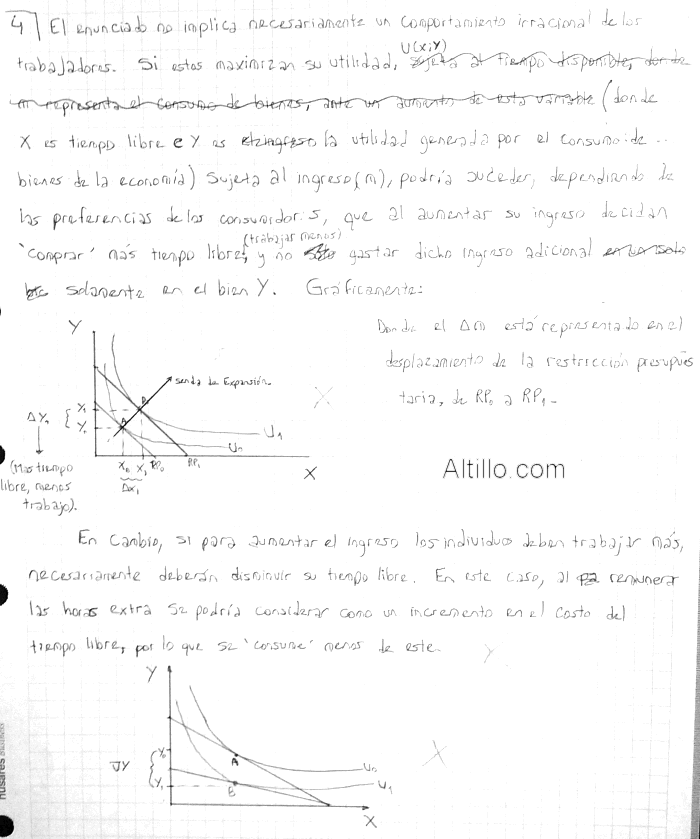 4] El enunciado no implica necesariamente un comportamiento irracional de los
trabajadores. Si estos maximizan su utilidad, U(x;y) sujeta al tiempo disponible, donde
m representa el consumo de bienes, ante un aumento de esta variable (donde
X es tiempo libre e Y es el ingreso la utilidad generada por el consumo de
bienes de la economía) sujeta al ingreso (m), podría suceder, dependiendo de
las preferencias de los consumidores, que al aumentar su ingreso decidan
'comprar' más tiempo libre, (trabajar menos) y no solo gastar dicho ingreso adicional en un solo
solamente en el bien Y. Gráficamente:
Donde el Δm está representado en el
desplazamiento de la restricción presupues
taria, de RP₀ a RP₁.
Y
senda de Expansión.
ΔY,
Y₁
Y₀
A
B
U₁
U₀
X₀ X₁ RP₀ RP₁
ΔX₁
X
(Mas tiempo
libre, menos
trabajo).
Altillo.com
En cambio, si para aumentar el ingreso los individuos deben trabajar más,
necesariamente deberán disminuir su tiempo libre. En este caso, al remunerar
las horas extra se podría considerar como un incremento en el costo del
tiempo libre, por lo que se 'consume' menos de este.
Y
∇Y
Y₀
Y₁
A
B
U₀
U₁
X
husares